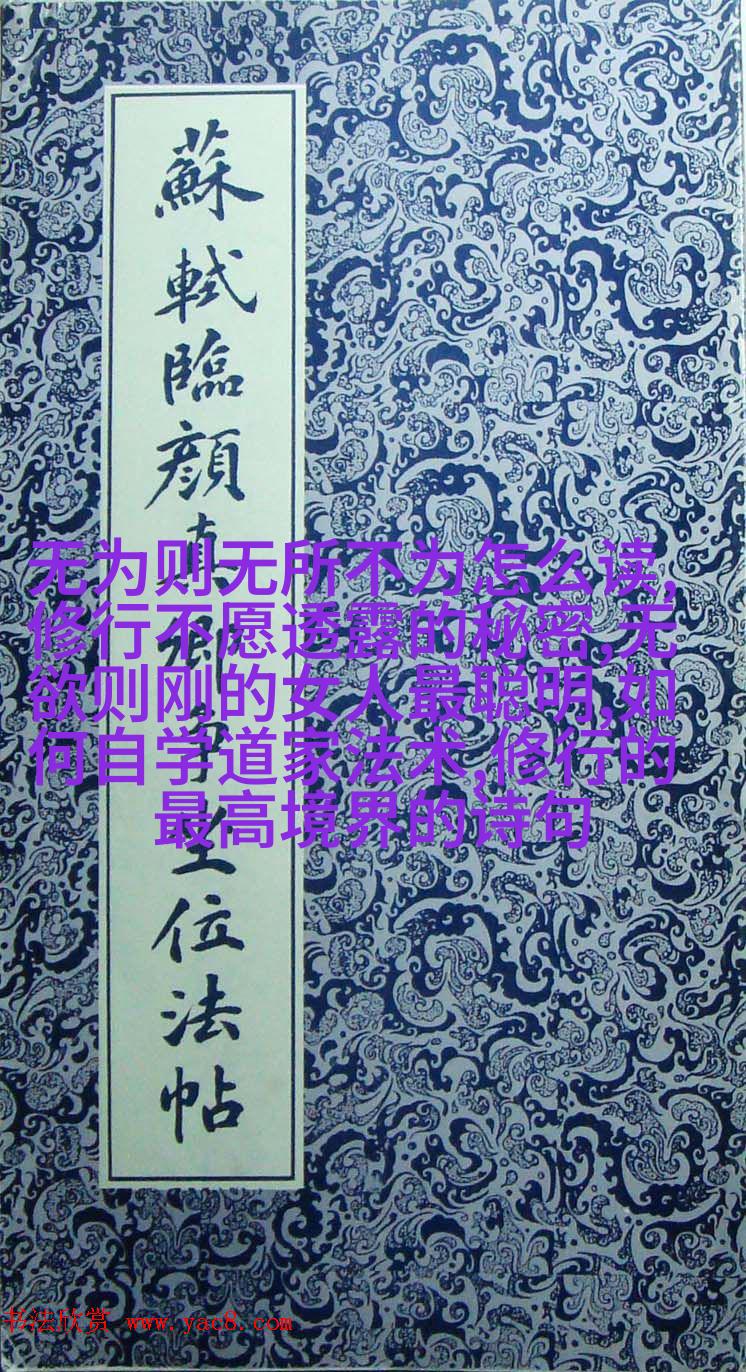 蘇軾臨顔真卿争坐位法帖
无为则无所不为怎么读,
修行不愿透露的秘密,无
欲则刚的女人最聪明,如
何自学道家法术,修行的
最高境界的诗句
书法欣赏 www.yac8.com